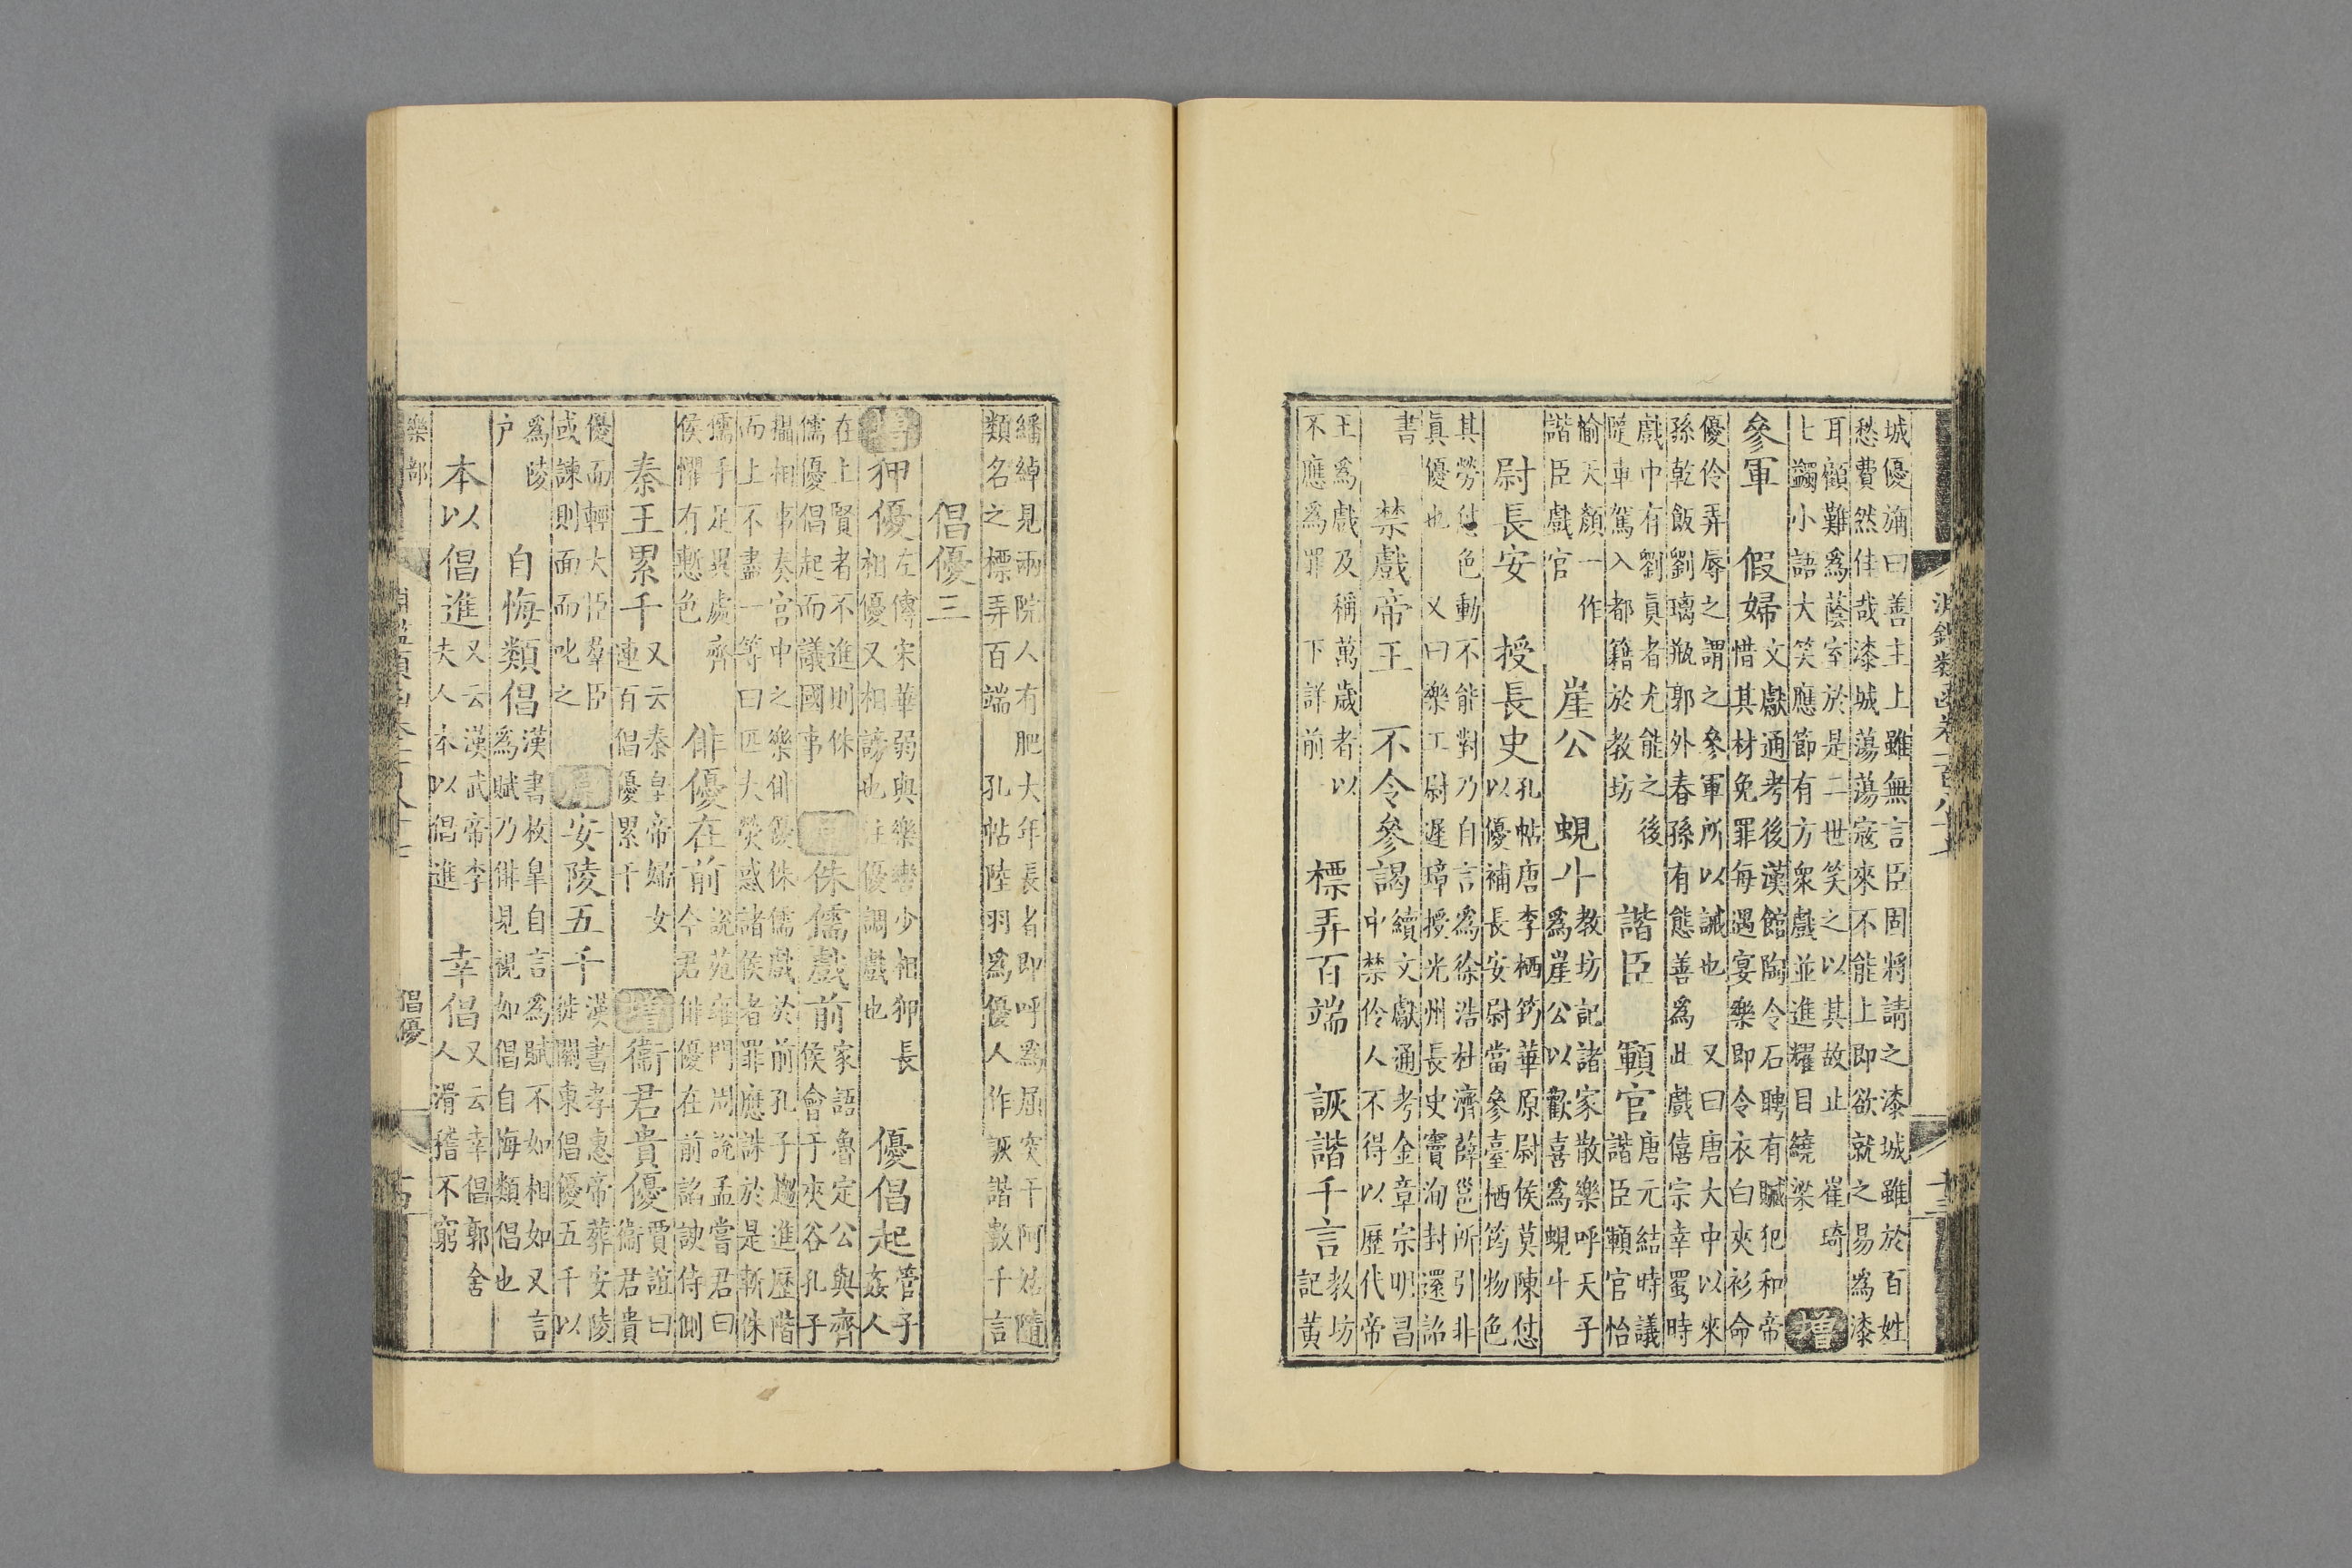 淵鑑類函卷一百八十七 十三
城優旃曰善主上雖無言臣固將請之漆城雖於百姓
愁費然佳哉漆城蕩蕩寇來不能上即欲就之易為漆
耳顧難為蔭室於是二世笑之以其故止 崔琦
七蠲小語大笑應節有方衆戲並進耀目繞梁 增
參軍 假婦 文獻通考後漢館陶令石聃有贓犯和帝
惜其材免罪每遇宴樂即令衣白夾衫命
優伶弄辱之謂之參軍所以誡也 又曰唐大中以來
孫乾飯劉璃瓶郭外春孫有態善為此戲僖宗幸蜀時
戲中有劉眞者尤能之後
隨車駕入都籍於教坊
諧臣 顐官 唐元結時議
諧臣顐官怡
愉天顏一作
諧臣戲官
崖公 蜆斗 教坊記諸家散樂呼天子
為崖公以歡喜為蜆斗
尉長安 授長史 孔帖唐李栖筠華原尉侯莫陳怤
以優補長安尉當參臺栖筠物色
其勞怤色動不能對乃自言為徐浩杜濟薛邕所引非
眞優也 又曰樂工尉遲璋授光州長史竇洵封還詔
書
禁戲帝王 不令參謁 續文獻通考金章宗明昌
中禁伶人不得以歷代帝
王為戲及稱萬歲者以
不應為罪 下詳前
標弄百端 詼諧千言 教坊
記黃
繙綽見兩院人有肥大年長者即呼為屈突干阿姑隨
類名之標弄百端 孔帖陸羽為優人作詼諧數千言
倡優三
增 狎優 左傳宋華弱與樂轡少相狎長
相優又相謗也註優調戲也
優倡起 管子
姦人
在上賢者不進則侏
儒優倡起而議國事
原 侏儒戲前 家語魯定公與齊
侯會于夾谷孔子
攝相事奏宮中之樂俳優侏儒戲於前孔子趨進歷階
而上不盡一等曰匹夫熒惑諸侯者罪應誅於是斬侏
儒手足異處齊
侯懼有慙色
俳優在前 說苑雍門周說孟嘗君曰
今君俳優在前諂諛侍側
秦王累千 又云秦皇帝婦女
連百倡優累千
增 衞君貴優 賈誼曰
衞君貴
優而輕大臣羣臣
或諫則面而叱之
原 安陵五千 漢書孝惠帝葬安陵
徙關東倡優五千以
為陵
戶
自悔類倡 漢書枚臯自言為賦不如相如又言
為賦乃俳見視如倡自悔類倡也
本以倡進 又云漢武帝李
夫人本以倡進
幸倡 又云幸倡郭舍
人滑稽不窮
樂部 倡優